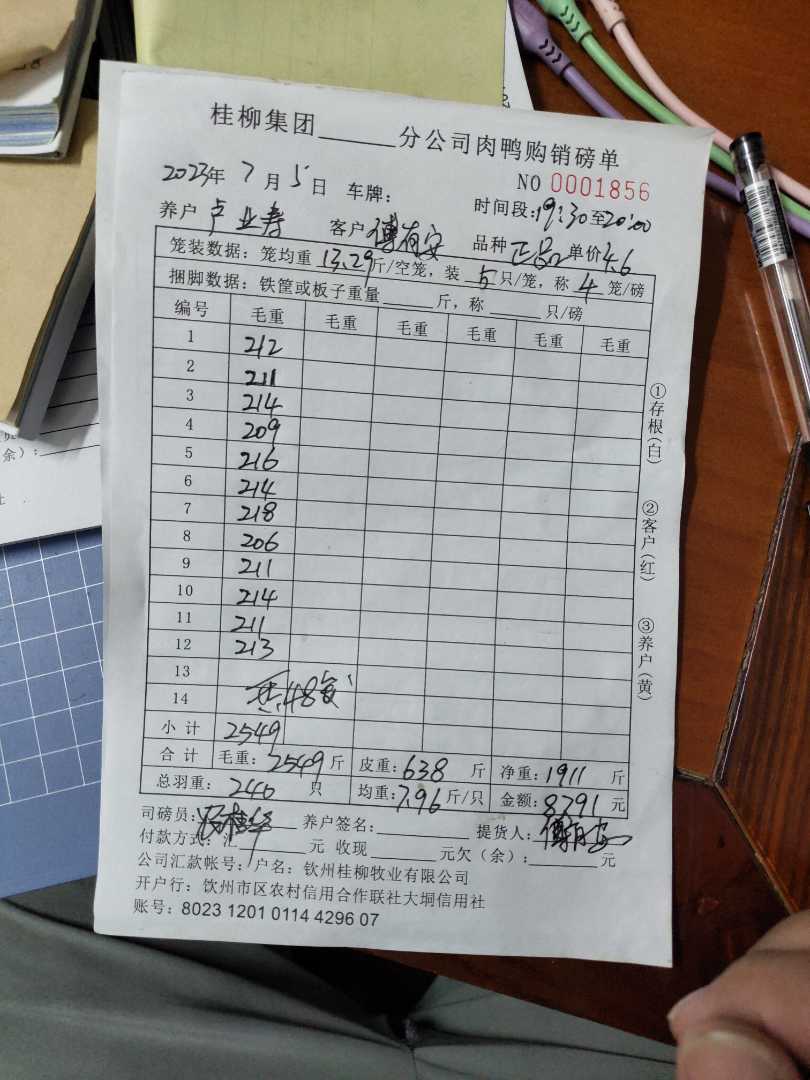 桂柳集团______分公司肉鸭购销磅单
NO 0001856
2023年 7月 5日 车牌：
时间段：19:30至20:00
养户 卢业寿 客户 傅有安 品种 正品 单价4.6
笼装数据：笼均重 13.29斤/空笼，装 5 只/笼，称 4 笼/磅
捆脚数据：铁筐或板子重量______斤，称______只/磅
编号 毛重 毛重 毛重 毛重 毛重 毛重
1 212
2 211
3 214
4 209
5 216
6 214
7 218
8 206
9 211
10 214
11 211
12 213
13
14 48
小计 2549
合计 毛重：2549斤 皮重：638 斤 净重：1911 斤
总羽重：240 只 均重：7.96斤/只 金额：8791元
①存根(白)
②客户(红)
③养户(黄)
司磅员： 养户签名：________ 提货人：傅有安
付款方式：汇______元 收现______元欠（余）：______元
公司汇款帐号：户名：钦州桂柳牧业有限公司
开户行：钦州市区农村信用合作联社大垌信用社
账号：8023 1201 0114 4296 07
余）：
社